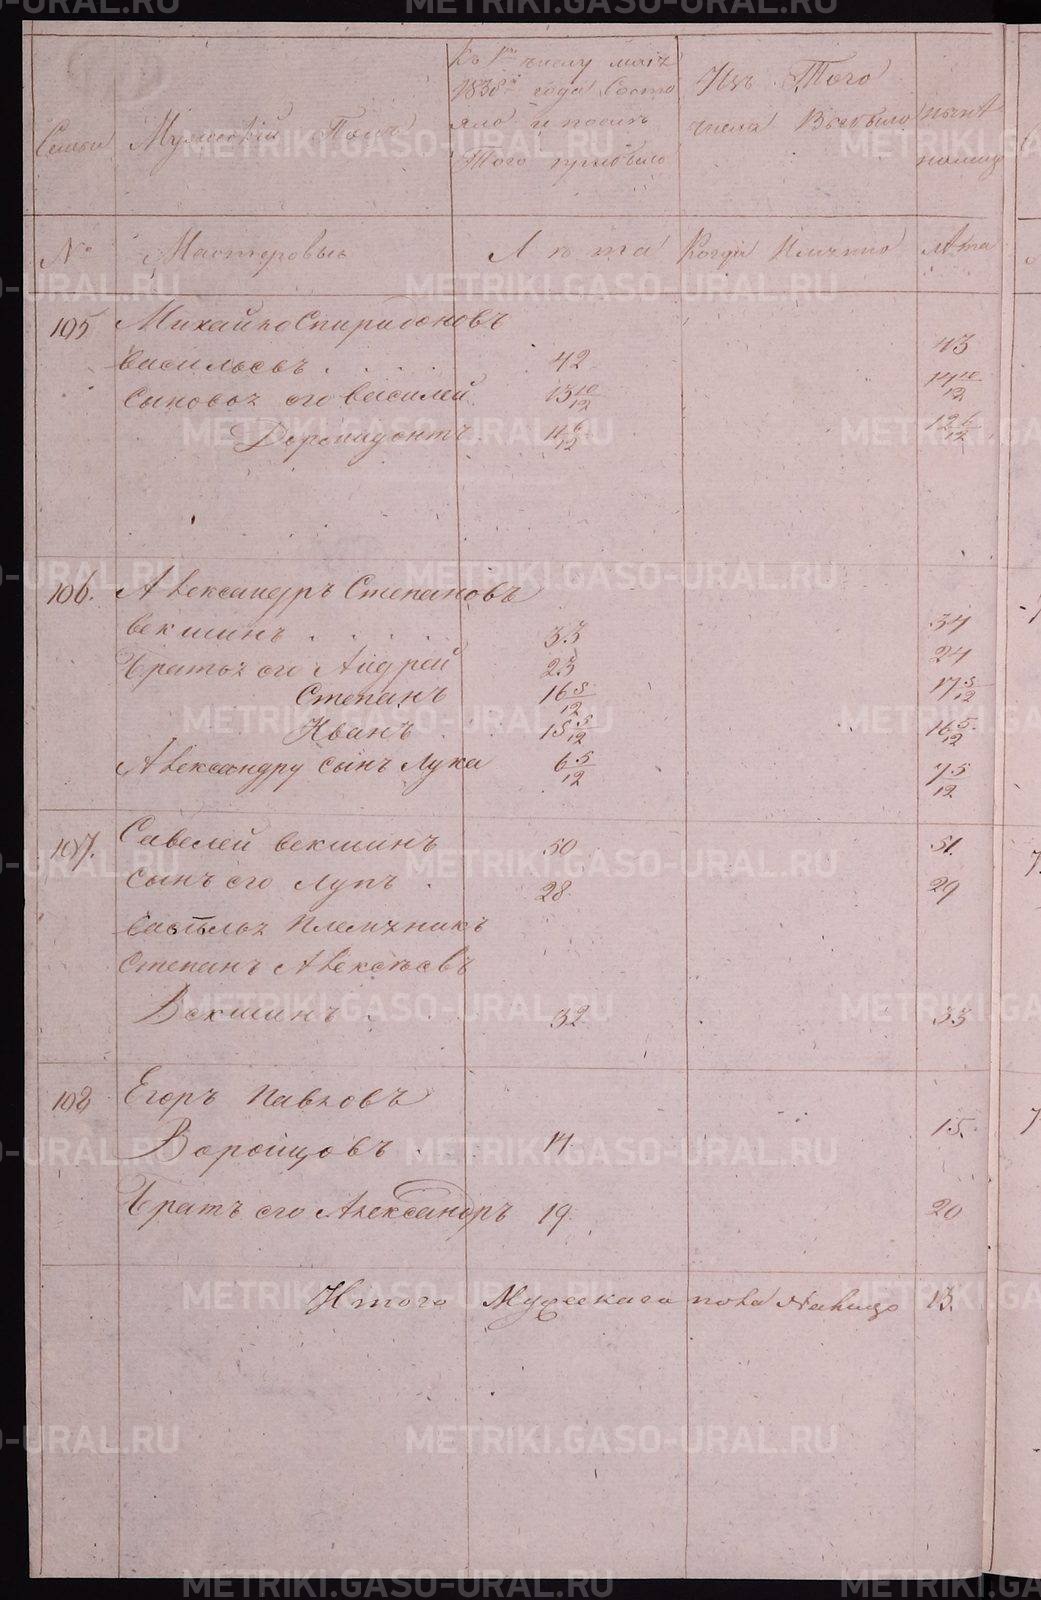 Семьи
Мужеский Полъ
Къ 1му числу маія
1838го года Состо
яло и послѣ
Того прибыло
Изъ Того
числа Выбыло
ныне
на лицо
№
Мастеровые
Лѣта
Когда Именно
Лѣта
105 Михайло Спиридоновъ
Васильевъ . . . . 42 43
Сыновья его Василей 13 10/12 14 10/12
Доримидонтъ 11 6/12 12 6/12
106. Александръ Степановъ
Векшинъ . . . . 33 34
Братья его Андрей 23 24
Степанъ 16 5/12 17 5/12
Иванъ 15 5/12 16 5/12
Александру сынъ Лука 6 5/12 7 5/12
107. Савелей Векшинъ 50 51.
Сынъ его Лупъ . 28 29
Савелья племянникъ
Степанъ Алексѣевъ
Векшинъ . . . 32 33
108 Егоръ Павловъ
Воронцовъ . . 14 15.
Братъ его Александръ 19 20
Итого Мужескаго пола Налицо 13.
METRIKI.GASO-URAL.RU